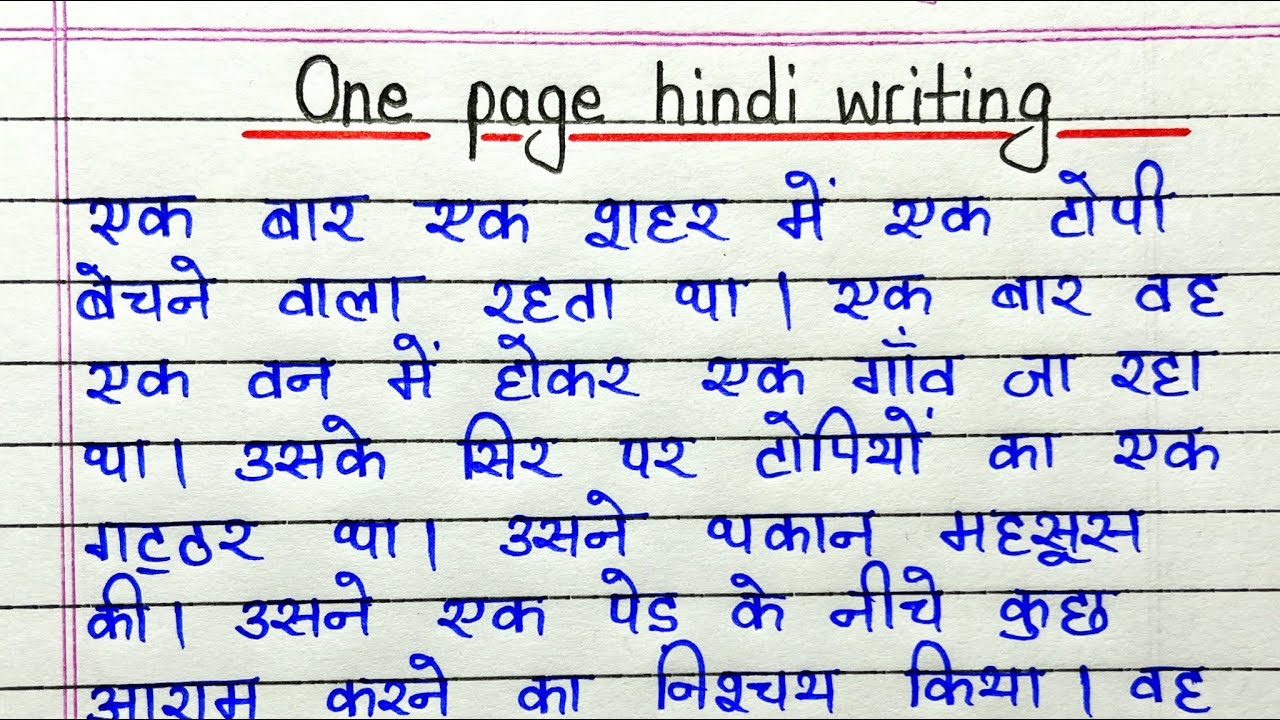 One page hindi writing
एक बार एक शहर में एक टोपी
बेचने वाला रहता था। एक बार वह
एक वन में होकर एक गाँव जा रहा
था। उसके सिर पर टोपियों का एक
गट्ठर था। उसने थकान महसूस
की। उसने एक पेड के नीचे कुछ
आराम करने का निश्चय किया। वह